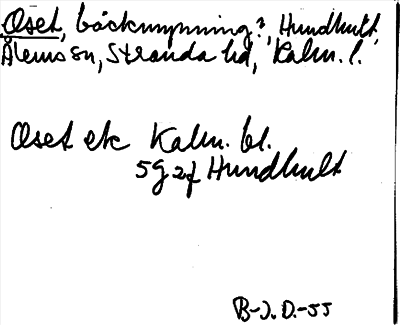 Oset, bäckmynning?, Hundhult,
Ålems sn, Stranda hd, Kalm. l.
Oset etc Kalm. bl.
5g2f Hundhult
B-J. D.-55